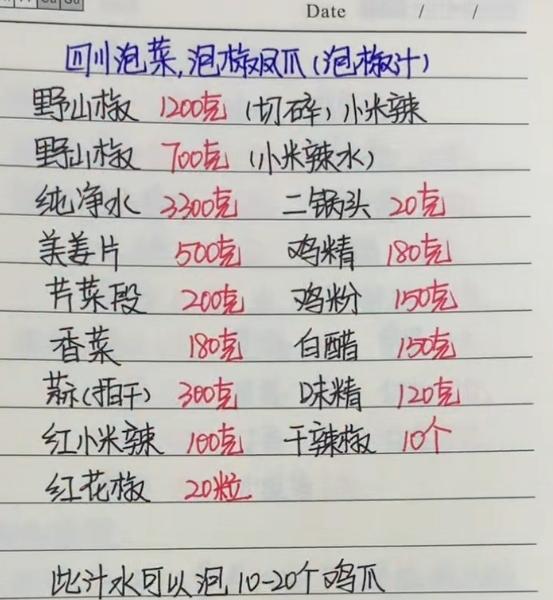 Date / /
四川泡菜,泡椒凤爪(泡椒汁)
野山椒 1200克 (切碎) 小米辣
野山椒 700克 (小米辣水)
纯净水 3300克 二锅头 20克
美姜片 500克 鸡精 180克
芹菜段 200克 鸡粉 150克
香菜 180克 白醋 150克
蒜(拍干) 300克 味精 120克
红小米辣 100克 干辣椒 10个
红花椒 20粒
此汁水可以泡10-20个鸡爪